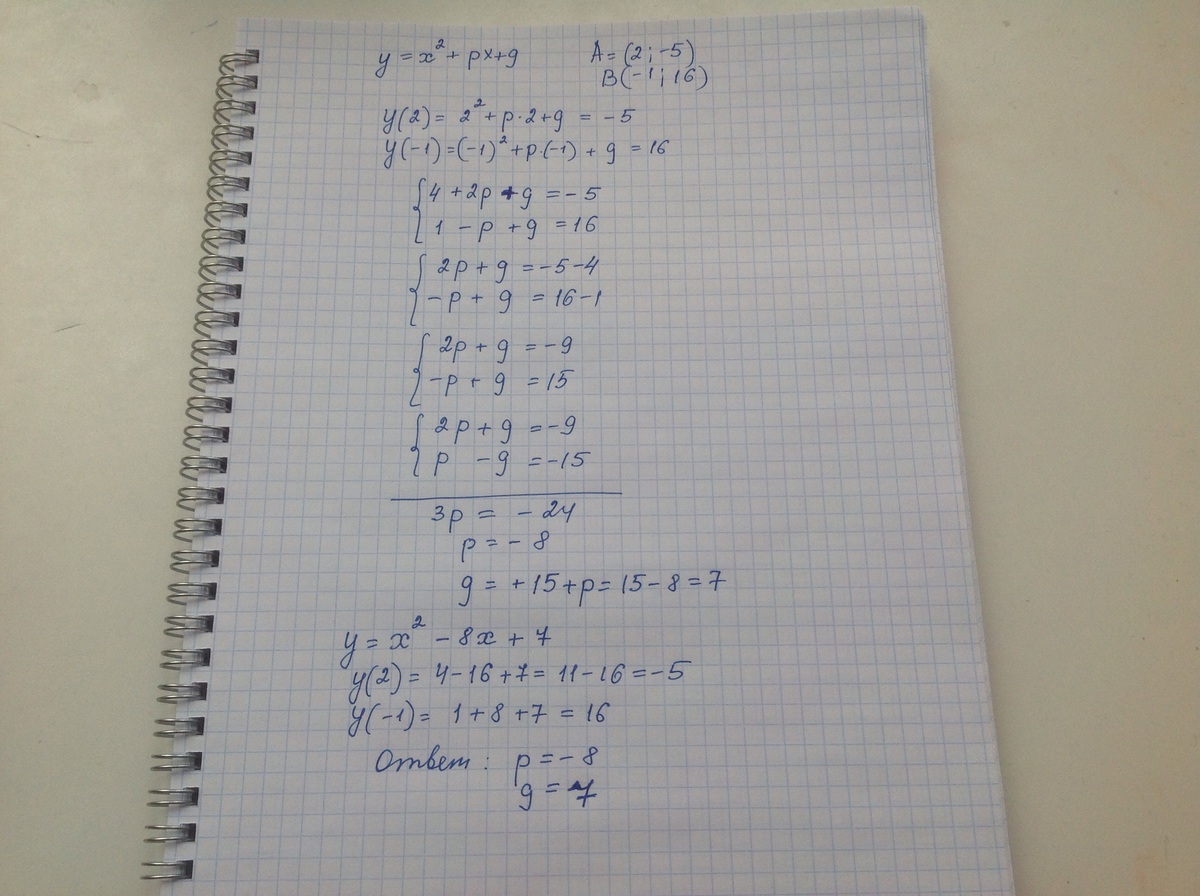 y = x² + px + g   A = (2; -5)
B(-1; 16)
y(2) = 2² + p·2 + g = -5
y(-1) = (-1)² + p·(-1) + g = 16
{ 4 + 2p + g = -5
1 - p + g = 16
{ 2p + g = -5-4
-p + g = 16-1
{ 2p + g = -9
-p + g = 15
{ 2p + g = -9
p - g = -15
3p = -24
p = -8
g = +15 + p = 15 - 8 = 7
y = x² - 8x + 7
y(2) = 4 - 16 + 7 = 11 - 16 = -5
y(-1) = 1 + 8 + 7 = 16
Ответ: p = -8
g = 7